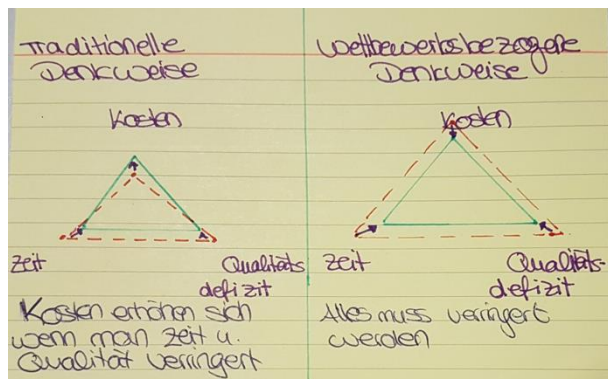 Traditionelle
Denkweise
Kosten
Zeit
Qualitäts-
defizit
Kosten erhöhen sich
wenn man Zeit u.
Qualität verringert
Wettbewerbsbezogene
Denkweise
Kosten
Zeit
Qualitäts-
defizit
Alles muss verringert
werden